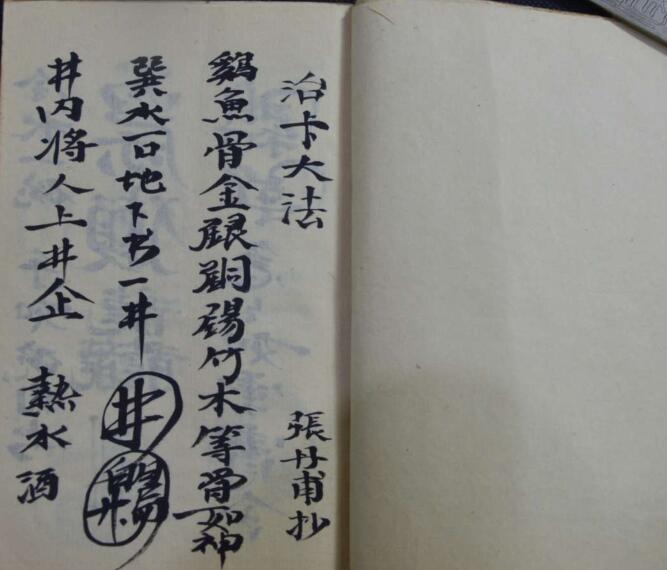 治卡大法
張丹甫抄
鷄魚骨金銀銅錫竹木等骨如神
巽水一口地下书一井
井
井内將人上井企
熱水酒